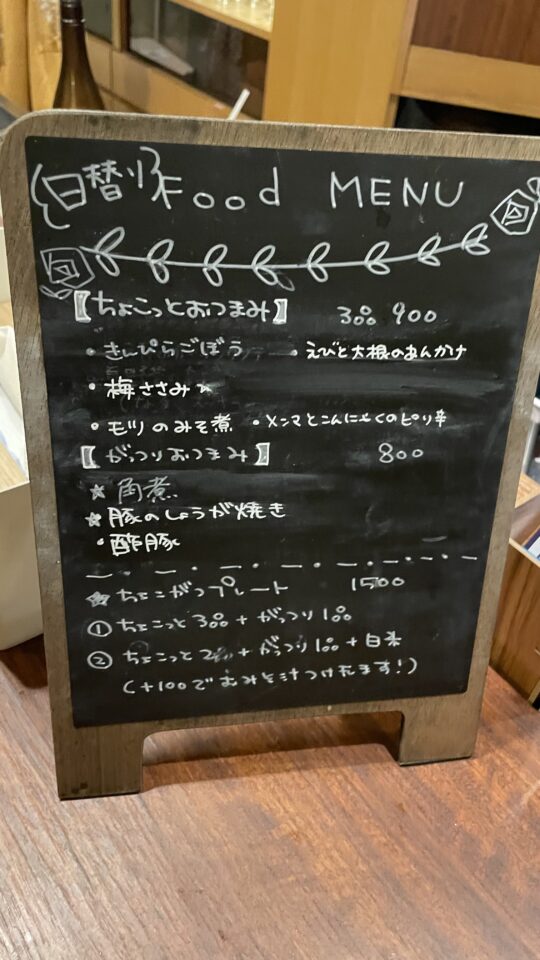 (日替り) Food MENU
【ちょこっとおつまみ】 3コ 900
・きんぴらごぼう ・えびと大根のあんかけ
・梅ささみ
・モツのみそ煮 ・メンマとこんにゃくのピリ辛
【がっつりおつまみ】 800
☆角煮
☆豚のしょうが焼き
・酢豚
☆ちょこがつプレート 1500
① ちょこっと3コ+がっつり1コ
② ちょこっと2コ+がっつり1コ+白米
(+100で みそ汁つけれます!)